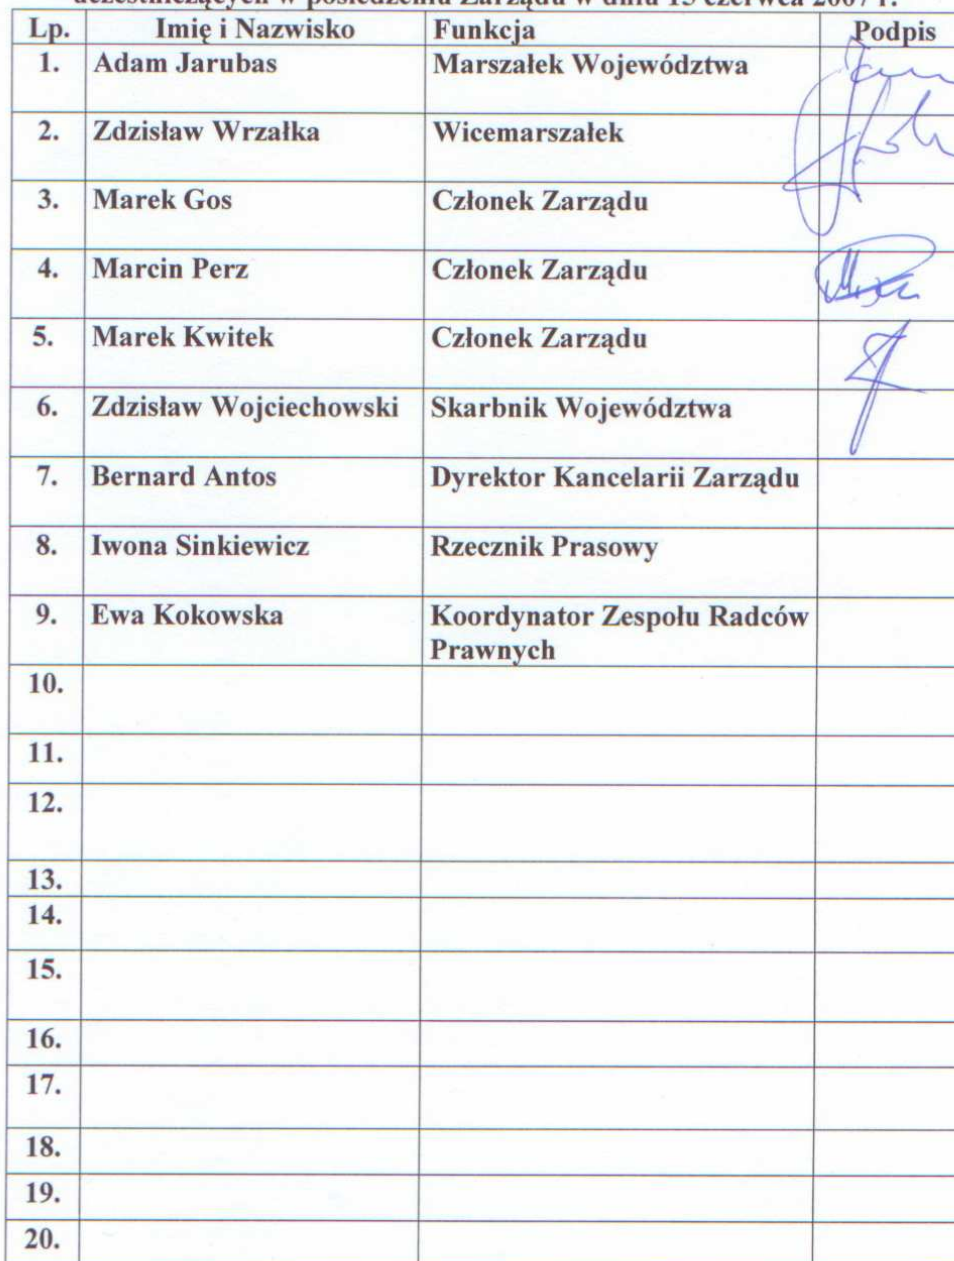 uczestniczących w posiedzeniu Zarządu w dniu 13 czerwca 2007 r.
Lp. Imię i Nazwisko Funkcja Podpis
1. Adam Jarubas Marszałek Województwa
2. Zdzisław Wrzałka Wicemarszałek
3. Marek Gos Członek Zarządu
4. Marcin Perz Członek Zarządu
5. Marek Kwitek Członek Zarządu
6. Zdzisław Wojciechowski Skarbnik Województwa
7. Bernard Antos Dyrektor Kancelarii Zarządu
8. Iwona Sinkiewicz Rzecznik Prasowy
9. Ewa Kokowska Koordynator Zespołu Radców
Prawnych
10.
11.
12.
13.
14.
15.
16.
17.
18.
19.
20.